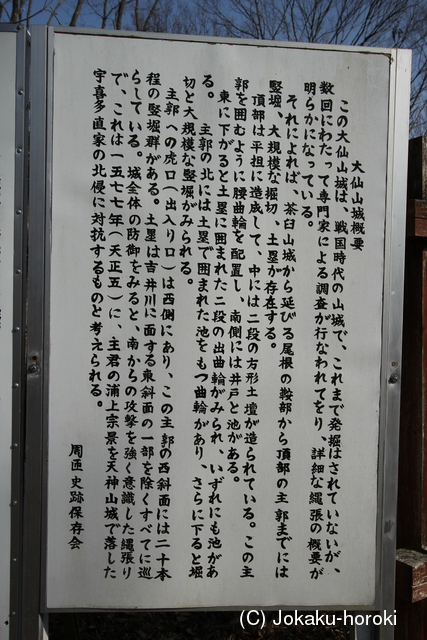 大仙山城概要
この大仙山城は、戦国時代の山城で、これまで発掘はされていないが、
数回にわたって専門家による調査が行なわれてをり、詳細な縄張の概要が
明らかになっている。
それによれば、茶臼山城から延びる尾根の鞍部から頂部の主郭までには
竪堀、大規模な堀切、土塁が存在する。
頂部は平担に造成して、中には二段の方形土壇が造られている。この主
郭を囲むように腰曲輪を配置し、南側には井戸と池がある。
東に下がると土塁に囲まれた二段の出曲輪がみられ、いずれにも池があ
る。
主郭の北には土塁で囲まれた池をもつ曲輪があり、さらに下ると堀
切と大規模な竪堀がみられる。
主郭への虎口(出入り口)は西側にあり、この主郭の西斜面には二十本
程の竪堀群がある。土塁は吉井川に面する東斜面の一部を除くすべてに巡
らしている。城全体の防御をみると、南からの攻撃を強く意識した縄張り
で、これは一五七七年(天正五)に、主君の浦上宗景を天神山城で落した
宇喜多直家の北侵に対抗するものと考えられる。
周匝史跡保存会
(C) Jokaku-horoki